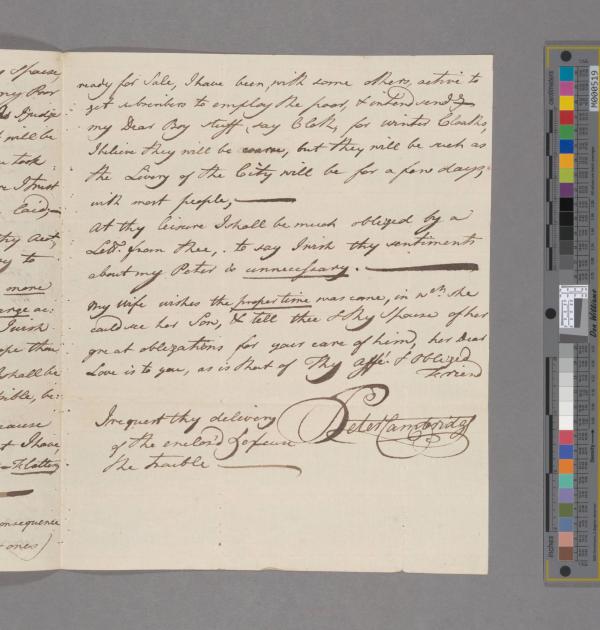 s Spouse,
my Poor
Judge
will be
u took
re I trust
thy act,
y to
more
ange ac:
I wish
ope thou
I shall be
sible, be:
ecause
t I have
Flattery
onsequence
tones)
ready for Sale, I have been, with some others, active to
get subscribers to employ the poor, & intend send.g
my Dear Boy stuff, say Cloth, for winter Cloaths,
I believe they will be coarse, but they will be such as
the Livery of the City will be for a few days,
with most people,
At thy leisure I shall be much obliged by a
Lett.r from thee, to say I wish thy sentiments
about my Peter is unnecessary.
My Wife wishes the proper time was come, in w.ch she
could see her Son, & tell thee & thy Spouse of her
great obligations for your care of him, her Dear
Love is to you, as is that of Thy Aff.te & Obliged
Friend
I request thy delivery
of the enclos'd & excuse
the trouble
centimeters
M000519
Don Williams
inches